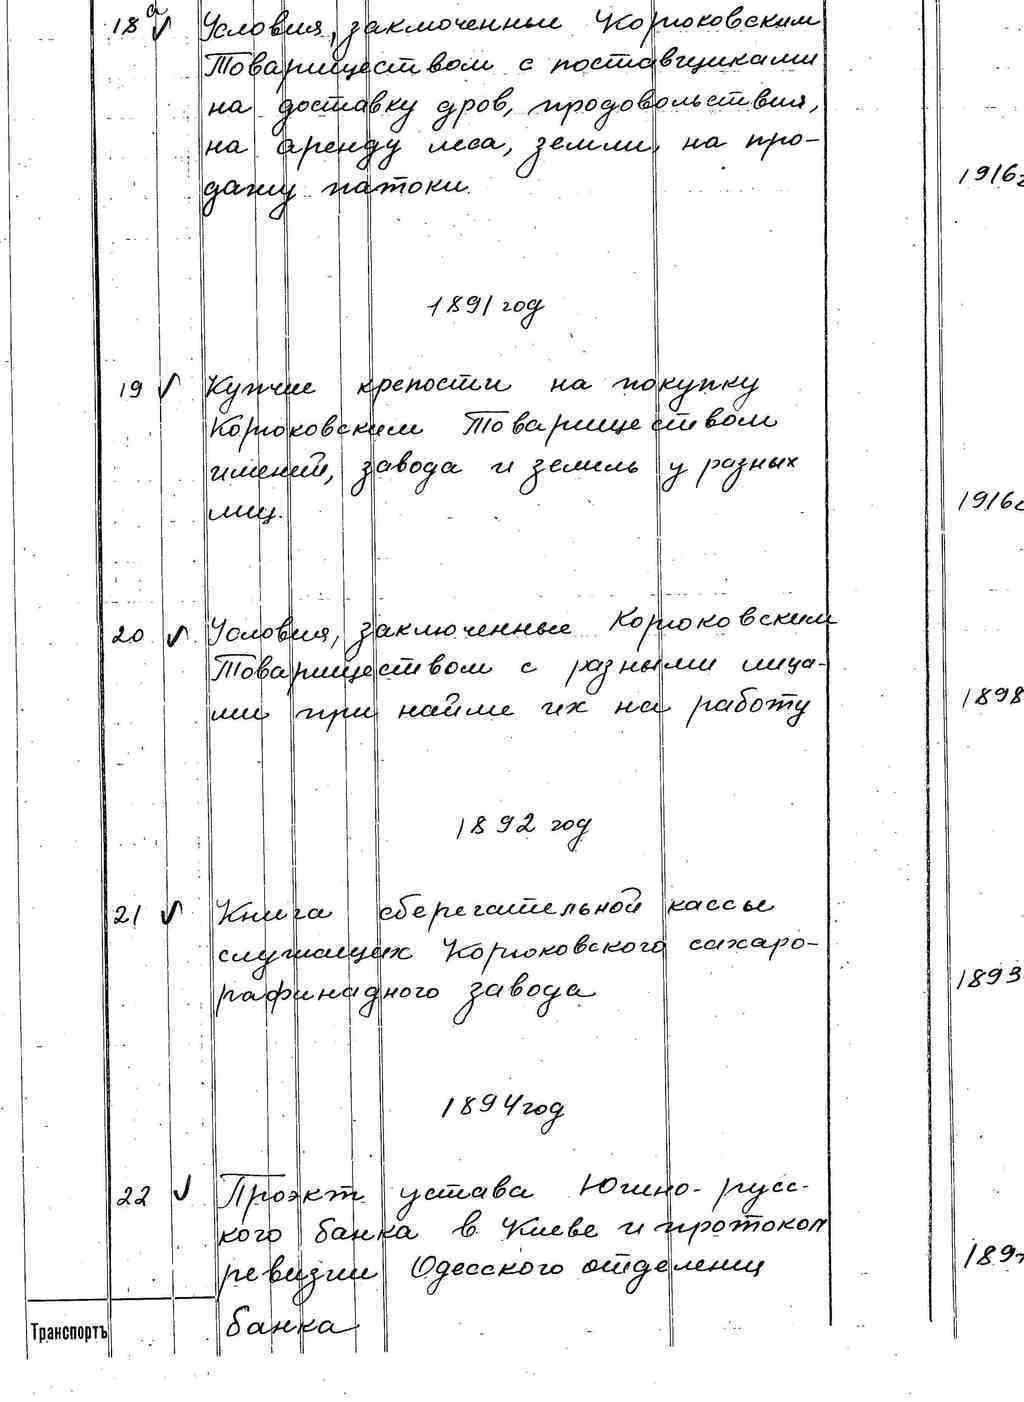 18а ✓ Условия, заключенные Корюковским
Товариществом с поставщиками
на доставку дров, продовольствия,
на аренду леса, земли, на про-
дажу патоки.
1916г
1891 год
19 ✓ Купчие крепости на покупку
Корюковским Товариществом
имений, завода и земель у разных
лиц.
1916г
20 ✓ Условия, заключенные Корюковским
Товариществом с разными лица-
ми при найме их на работу
1898
1892 год
21 ✓ Книга сберегательной кассы
служащих Корюковского сахаро-
рафинадного завода
1893
1894 год
22 ✓ Проэкт устава Южно-русс-
кого банка в Киеве и протокол
ревизии Одесского отделения
банка
Транспортъ